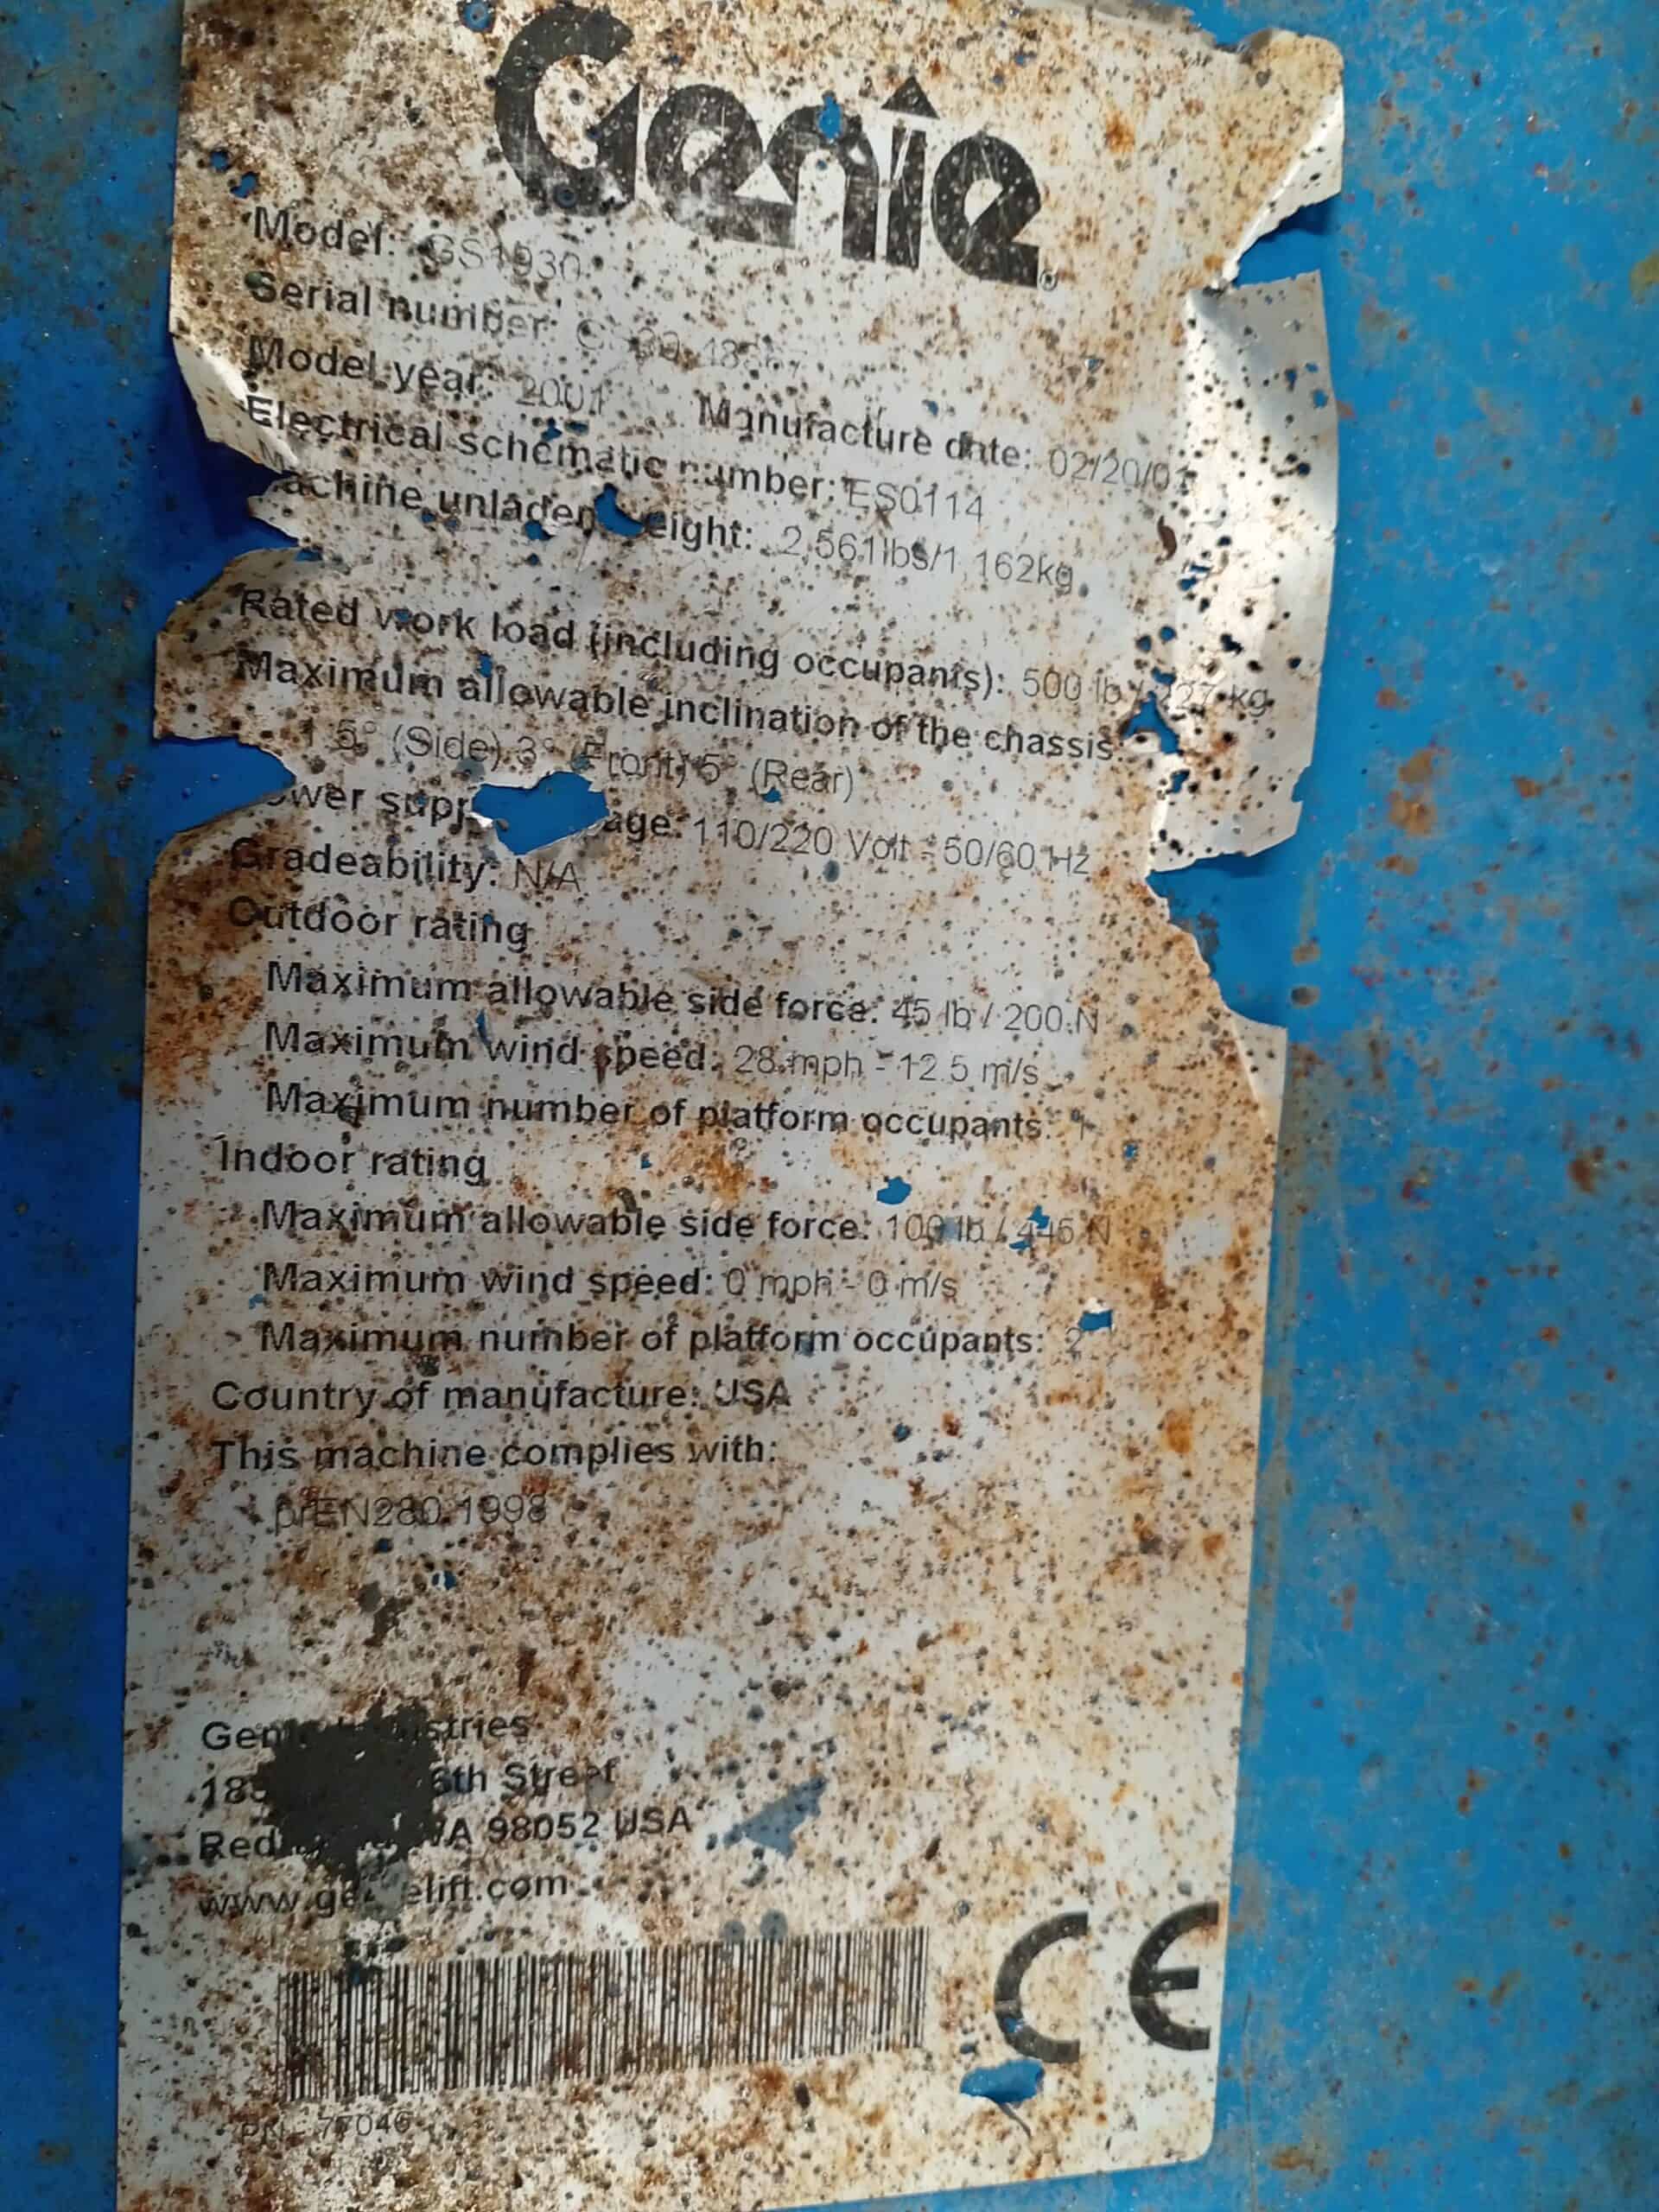 Genie
Model: GS1930
Serial number:
Model year: 2001 Manufacture date: 02/20/01
Electrical schematic number: ES0114
Machine unladen eight: 2,561lbs/1,162kg
Rated work load (including occupants): 500 lb / 227 kg
Maximum allowable inclination of the chassis:
1.5° (Side) 3° (Front) 5° (Rear)
ower supp age: 110/220 Volt - 50/60 Hz
Gradeability: N/A
Outdoor rating
Maximum allowable side force: 45 lb / 200 N
Maximum wind speed: 28 mph - 12.5 m/s
Maximum number of platform occupants: 1
Indoor rating
Maximum allowable side force: 100 lb / 445 N
Maximum wind speed: 0 mph - 0 m/s
Maximum number of platform occupants: 2
Country of manufacture: USA
This machine complies with:
prEN280:1998
Gen stries
18 6th Street
Red WA 98052 USA
www.ge elift.com
CE
PN - 77046